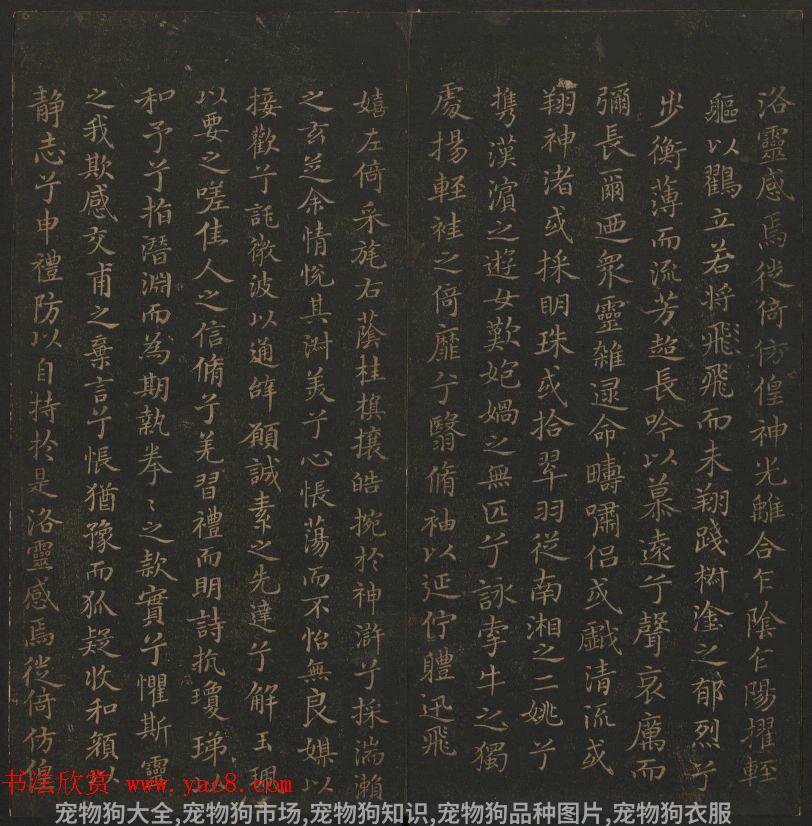 洛靈感焉徙倚仿偟神光離合乍陰乍陽擢輕
軀以鸖立若将飛飛而未翔踐椒塗之郁烈兮
步衡薄而流芳超長吟以慕遠兮聲哀厲而
彌長爾迺眾靈雜遝命疇嘯侣或戲清流或
翔神渚或採明珠或拾翠羽従南湘之二姚兮
携漢濵之遊女歎匏媧之無匹兮詠牽牛之獨
處揚輕袿之倚靡兮翳脩袖以延佇軆迅飛
嬉左倚采旄右蔭桂旗攘皓捥於神滸兮採湍瀬
之玄芝余情恱其淑美兮心悵蕩而不怡無良媒以
接歡兮託微波以通辝願誠素之先達兮解玉珮
以要之嗟佳人之信脩兮羌習禮而明詩抗瓊珶
和予兮指潛淵而為期執拳〻之款實兮懼斯靈
之我欺感交甫之棄言兮悵猶豫而狐疑收和顏以
静志兮申禮防以自持於是洛靈感焉徙倚仿偟
书法欣赏 www.yac8.com
宠物狗大全,宠物狗市场,宠物狗知识,宠物狗品种图片,宠物狗衣服